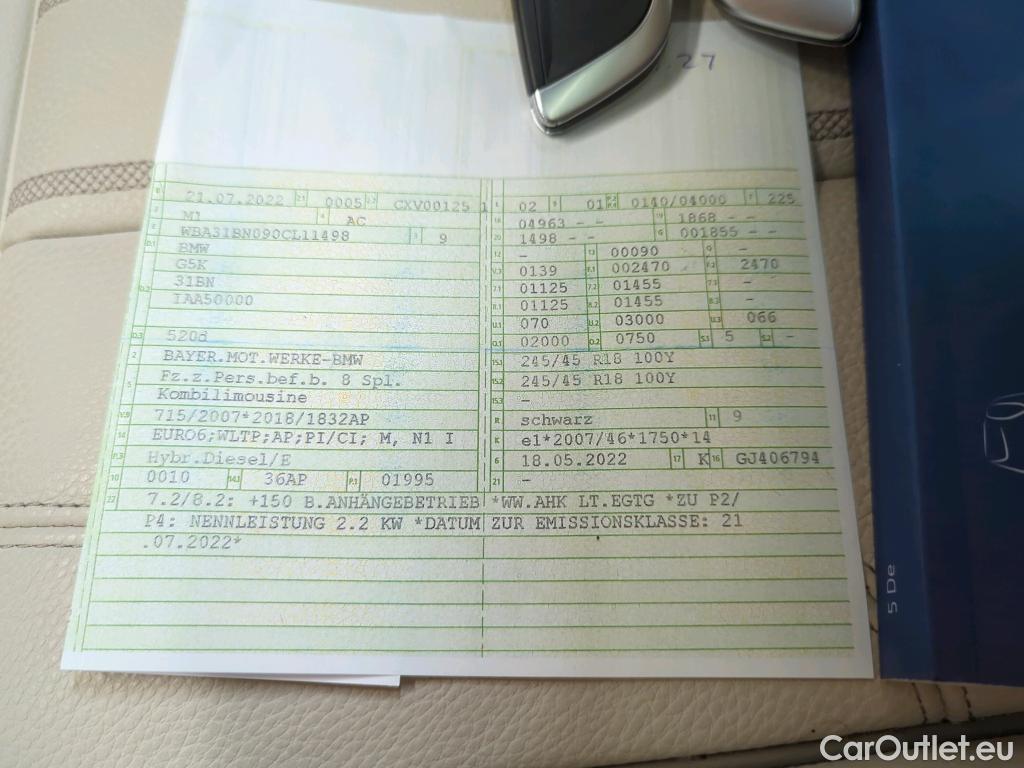 27
21.07.2022 2.1 0005 2.2 CXV00125 1
M1 4 AC
WBA31BN090CL11498 3 9
D.1 BMW
G5K
D.2 31BN
IAA50000
D.3 520d
2 BAYER.MOT.WERKE-BMW
5 Fz.z.Pers.bef.b. 8 Spl.
Kombilimousine
V.9 715/2007*2018/1832AP
14 EURO6;WLTP;AP;PI/CI; M, N1 I
P.3 Hybr.Diesel/E
10 0010 14.1 36AP P.1 01995
L 02 9 01 P.2 P.4 0140/04000 T 225
18 04963 - - 19 1868 - -
20 1498 - - G 001855 - -
12 - 13 00090 Q -
V.7 0139 F.1 002470 F.2 2470
7.1 01125 7.2 01455 7.3 -
8.1 01125 8.2 01455 8.3 -
U.1 070 U.2 03000 U.3 066
O.1 02000 O.2 0750 S.1 5 S.2 -
15.1 245/45 R18 100Y
15.2 245/45 R18 100Y
15.3 -
R schwarz 11 9
K e1*2007/46*1750*14
6 18.05.2022 17 K 16 GJ406794
21 -
22 7.2/8.2: +150 B.ANHÄNGEBETRIEB *WW.AHK LT.EGTG *ZU P2/
P4: NENNLEISTUNG 2.2 KW *DATUM ZUR EMISSIONSKLASSE: 21
.07.2022*
5 De
CarOutlet.eu